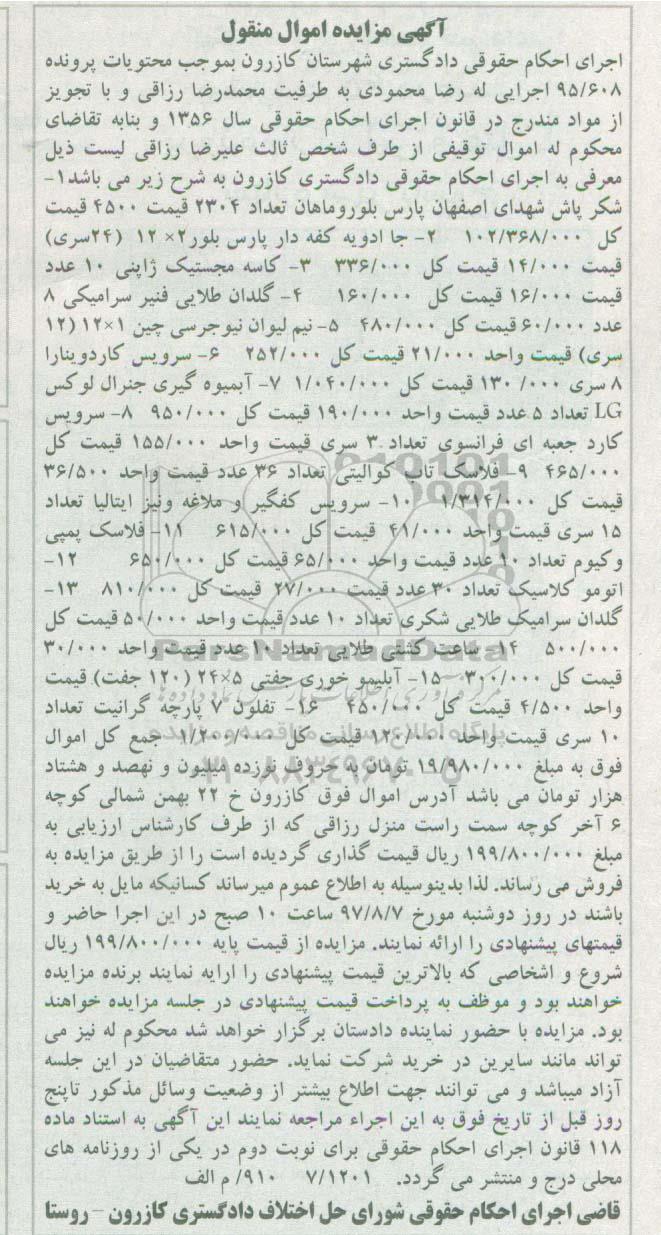 آگهی مزایده اموال منقول
اجرای احکام حقوقی دادگستری شهرستان کازرون بموجب محتویات پرونده
۹۵/۶۰۸ اجرایی له رضا محمودی به طرفیت محمدرضا رزاقی و با تجویز
از مواد مندرج در قانون اجرای احکام حقوقی سال ۱۳۵۶ و بنابه تقاضای
محکوم له اموال توقیفی از طرف شخص ثالث علیرضا رزاقی لیست ذیل
معرفی به اجرای احکام حقوقی دادگستری کازرون به شرح زیر می باشد۱-
شکر پاش شهدای اصفهان پارس بلوروماهان تعداد ۲۳۰۴ قیمت ۴۵۰۰ قیمت
کل ۱۰۲/۳۶۸/۰۰۰ ۲- جا ادویه کفه دار پارس بلور۲× ۱۲ (۲۴سری)
قیمت ۱۴/۰۰۰ قیمت کل ۳۳۶/۰۰۰ ۳- کاسه مجستیک ژاپنی ۱۰ عدد
قیمت ۱۶/۰۰۰ قیمت کل ۱۶۰/۰۰۰ ۴- گلدان طلایی فنیر سرامیکی ۸
عدد ۶۰/۰۰۰ قیمت کل ۴۸۰/۰۰۰ ۵- نیم لیوان نیوجرسی چین ۱×۱۲ (۱۲
سری) قیمت واحد ۲۱/۰۰۰ قیمت کل ۲۵۲/۰۰۰ ۶- سرویس کاردوینارا
۸ سری ۱۳۰/۰۰۰ قیمت کل ۱/۰۴۰/۰۰۰ ۷- آبمیوه گیری جنرال لوکس
LG تعداد ۵ عدد قیمت واحد ۱۹۰/۰۰۰ قیمت کل ۹۵۰/۰۰۰ ۸- سرویس
کارد جعبه ای فرانسوی تعداد ۳ سری قیمت واحد ۱۵۵/۰۰۰ قیمت کل
۴۶۵/۰۰۰ ۹- فلاسک تاپ کوالیتی تعداد ۳۶ عدد قیمت واحد ۳۶/۵۰۰
قیمت کل ۱/۳۱۴/۰۰۰ ۱۰- سرویس کفگیر و ملاغه ونیز ایتالیا تعداد
۱۵ سری قیمت واحد ۴۱/۰۰۰ قیمت کل ۶۱۵/۰۰۰ ۱۱- فلاسک پمپی
وکیوم تعداد ۱۰ عدد قیمت واحد ۶۵/۰۰۰ قیمت کل ۶۵۰/۰۰۰ ۱۲-
اتومو کلاسیک تعداد ۳۰ عدد قیمت ۲۷/۰۰۰ قیمت کل ۸۱۰/۰۰۰ ۱۳-
گلدان سرامیک طلایی شکری تعداد ۱۰ عدد قیمت واحد ۵۰/۰۰۰ قیمت کل
۵۰۰/۰۰۰ ۱۴- ساعت کشتی طلایی تعداد ۱۰ عدد قیمت واحد ۳۰/۰۰۰
قیمت کل ۳۰۰/۰۰۰ ۱۵- آبلیمو خوری جفتی ۵×۲۴ (۱۲۰ جفت) قیمت
واحد ۴/۵۰۰ قیمت کل ۴۵۰/۰۰۰ ۱۶- تفلون ۷ پارچه گرانیت تعداد
۱۰ سری قیمت واحد ۱۲۰/۰۰۰ قیمت کل ۱/۲۰۰/۰۰۰ جمع کل اموال
فوق به مبلغ ۱۹/۹۸۰/۰۰۰ تومان به حروف نوزده میلیون و نهصد و هشتاد
هزار تومان می باشد آدرس اموال فوق کازرون خ ۲۲ بهمن شمالی کوچه
۶ آخر کوچه سمت راست منزل رزاقی که از طرف کارشناس ارزیابی به
مبلغ ۱۹۹/۸۰۰/۰۰۰ ریال قیمت گذاری گردیده است را از طریق مزایده به
فروش می رساند. لذا بدینوسیله به اطلاع عموم میرساند کسانیکه مایل به خرید
باشند در روز دوشنبه مورخ ۹۷/۸/۷ ساعت ۱۰ صبح در این اجرا حاضر و
قیمتهای پیشنهادی را ارائه نمایند. مزایده از قیمت پایه ۱۹۹/۸۰۰/۰۰۰ ریال
شروع و اشخاصی که بالاترین قیمت پیشنهادی را ارایه نمایند برنده مزایده
خواهند بود و موظف به پرداخت قیمت پیشنهادی در جلسه مزایده خواهند
بود. مزایده با حضور نماینده دادستان برگزار خواهد شد محکوم له نیز می
تواند مانند سایرین در خرید شرکت نماید. حضور متقاضیان در این جلسه
آزاد میباشد و می توانند جهت اطلاع بیشتر از وضعیت وسائل مذکور تاپنج
روز قبل از تاریخ فوق به این اجراء مراجعه نمایند این آگهی به استناد ماده
۱۱۸ قانون اجرای احکام حقوقی برای نوبت دوم در یکی از روزنامه های
محلی درج و منتشر می گردد. ۷/۱۲۰۱ ۹۱۰/ م الف
قاضی اجرای احکام حقوقی شورای حل اختلاف دادگستری کازرون - روستا
ParsNamadData